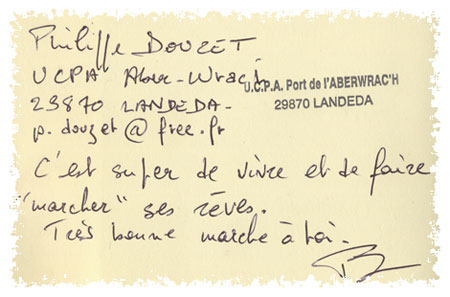 Philippe DOUZET
UCPA Aber-Wrac'h
U.C.P.A. Port de l'ABERWRAC'H
29870 LANDEDA
29870 LANDEDA-
p.douzet@free.fr
C'est super de vivre et de faire
"marcher" ses rêves.
Très bonne marche à toi.